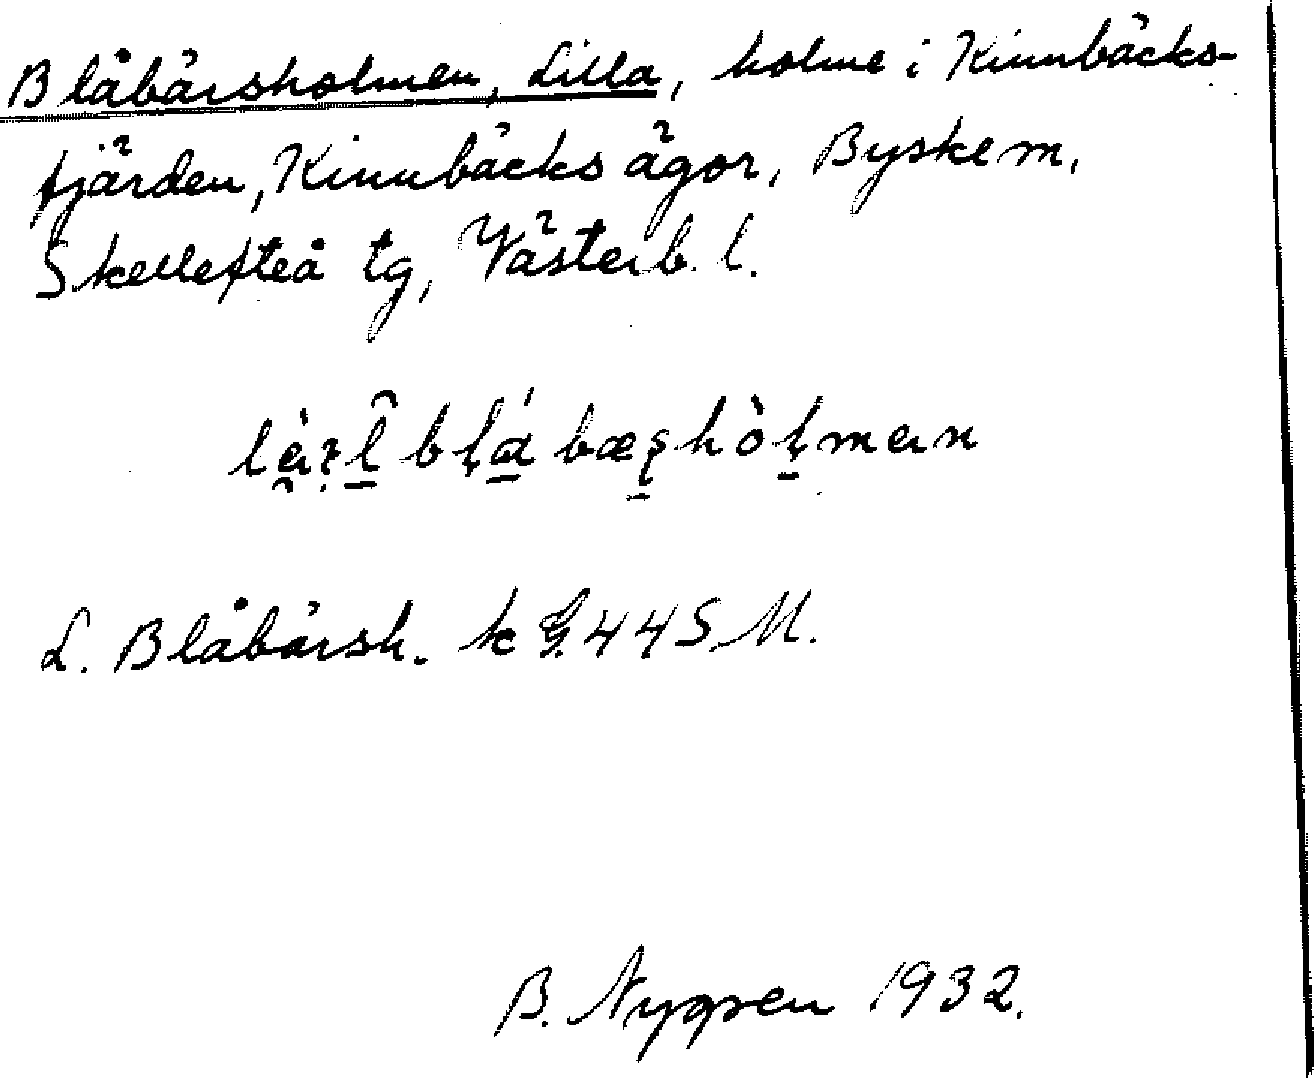 Blåbärsholmen, Lilla, holme i Kinnbäcks-
fjärden, Kinnbäcks ägor, Byske sn,
Skellefteå tg, Västerb. l.
L. Blåbärsh. k 44 S.M.
B. Nygren 1932.